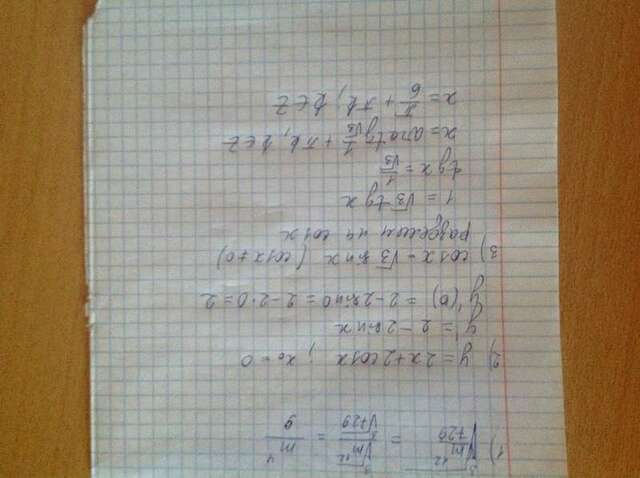 1) ∛(m¹²/729) = ∛m¹²/∛729 = m⁴/9
2) y = 2x+2cosx ; x₀ = 0
y' = 2 - 2sinx
y'(0) = 2-2sin0 = 2-2·0 = 2
3) cosx = √3 sinx (cosx≠0)
разделим на cosx
1 = √3 tgx
tgx = 1/√3
x = arctg 1/√3 + πk, k∈Z
x = π/6 + πk, k∈Z